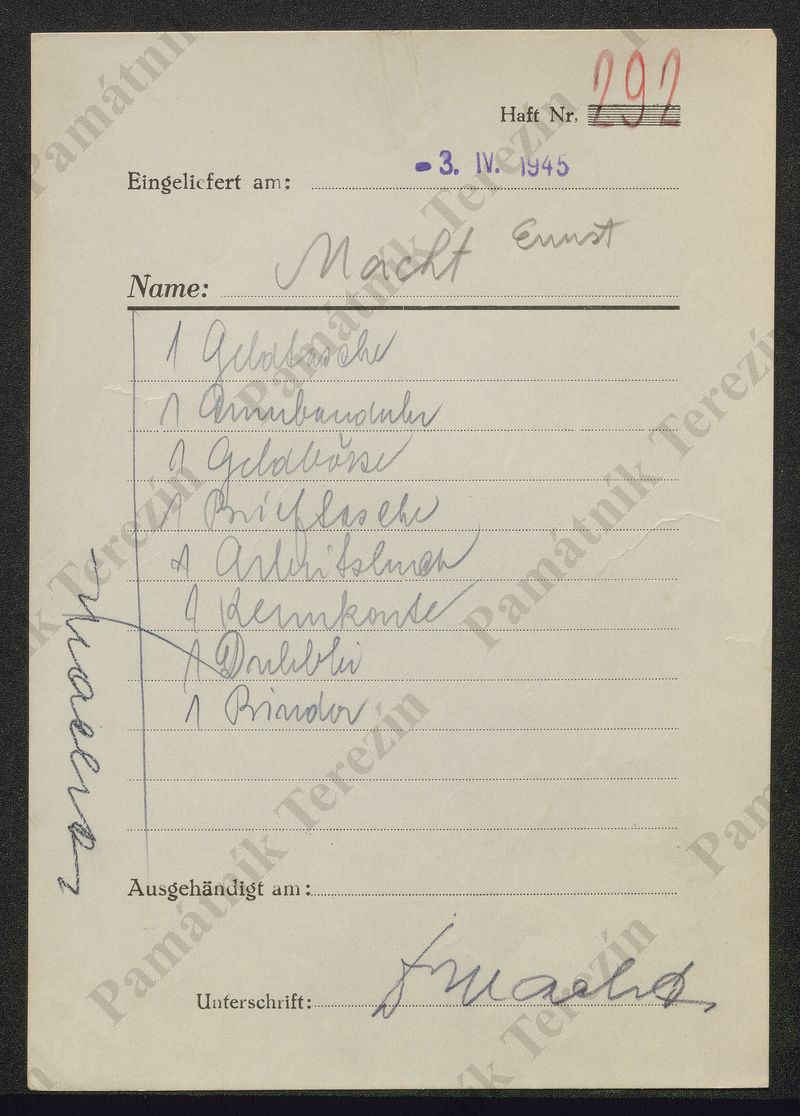 Haft Nr. 292
Eingeliefert am: - 3. IV. 1945
Name: Macht Ernst
1 Geldtasche
1 Armbanduhr
1 Geldbörse
1 Brieftasche
1 Arbeitsbuch
1 Kennkarte
1
1 Binder
Macht
Ausgehändigt am:
Unterschrift: Macht
Památník Terezín